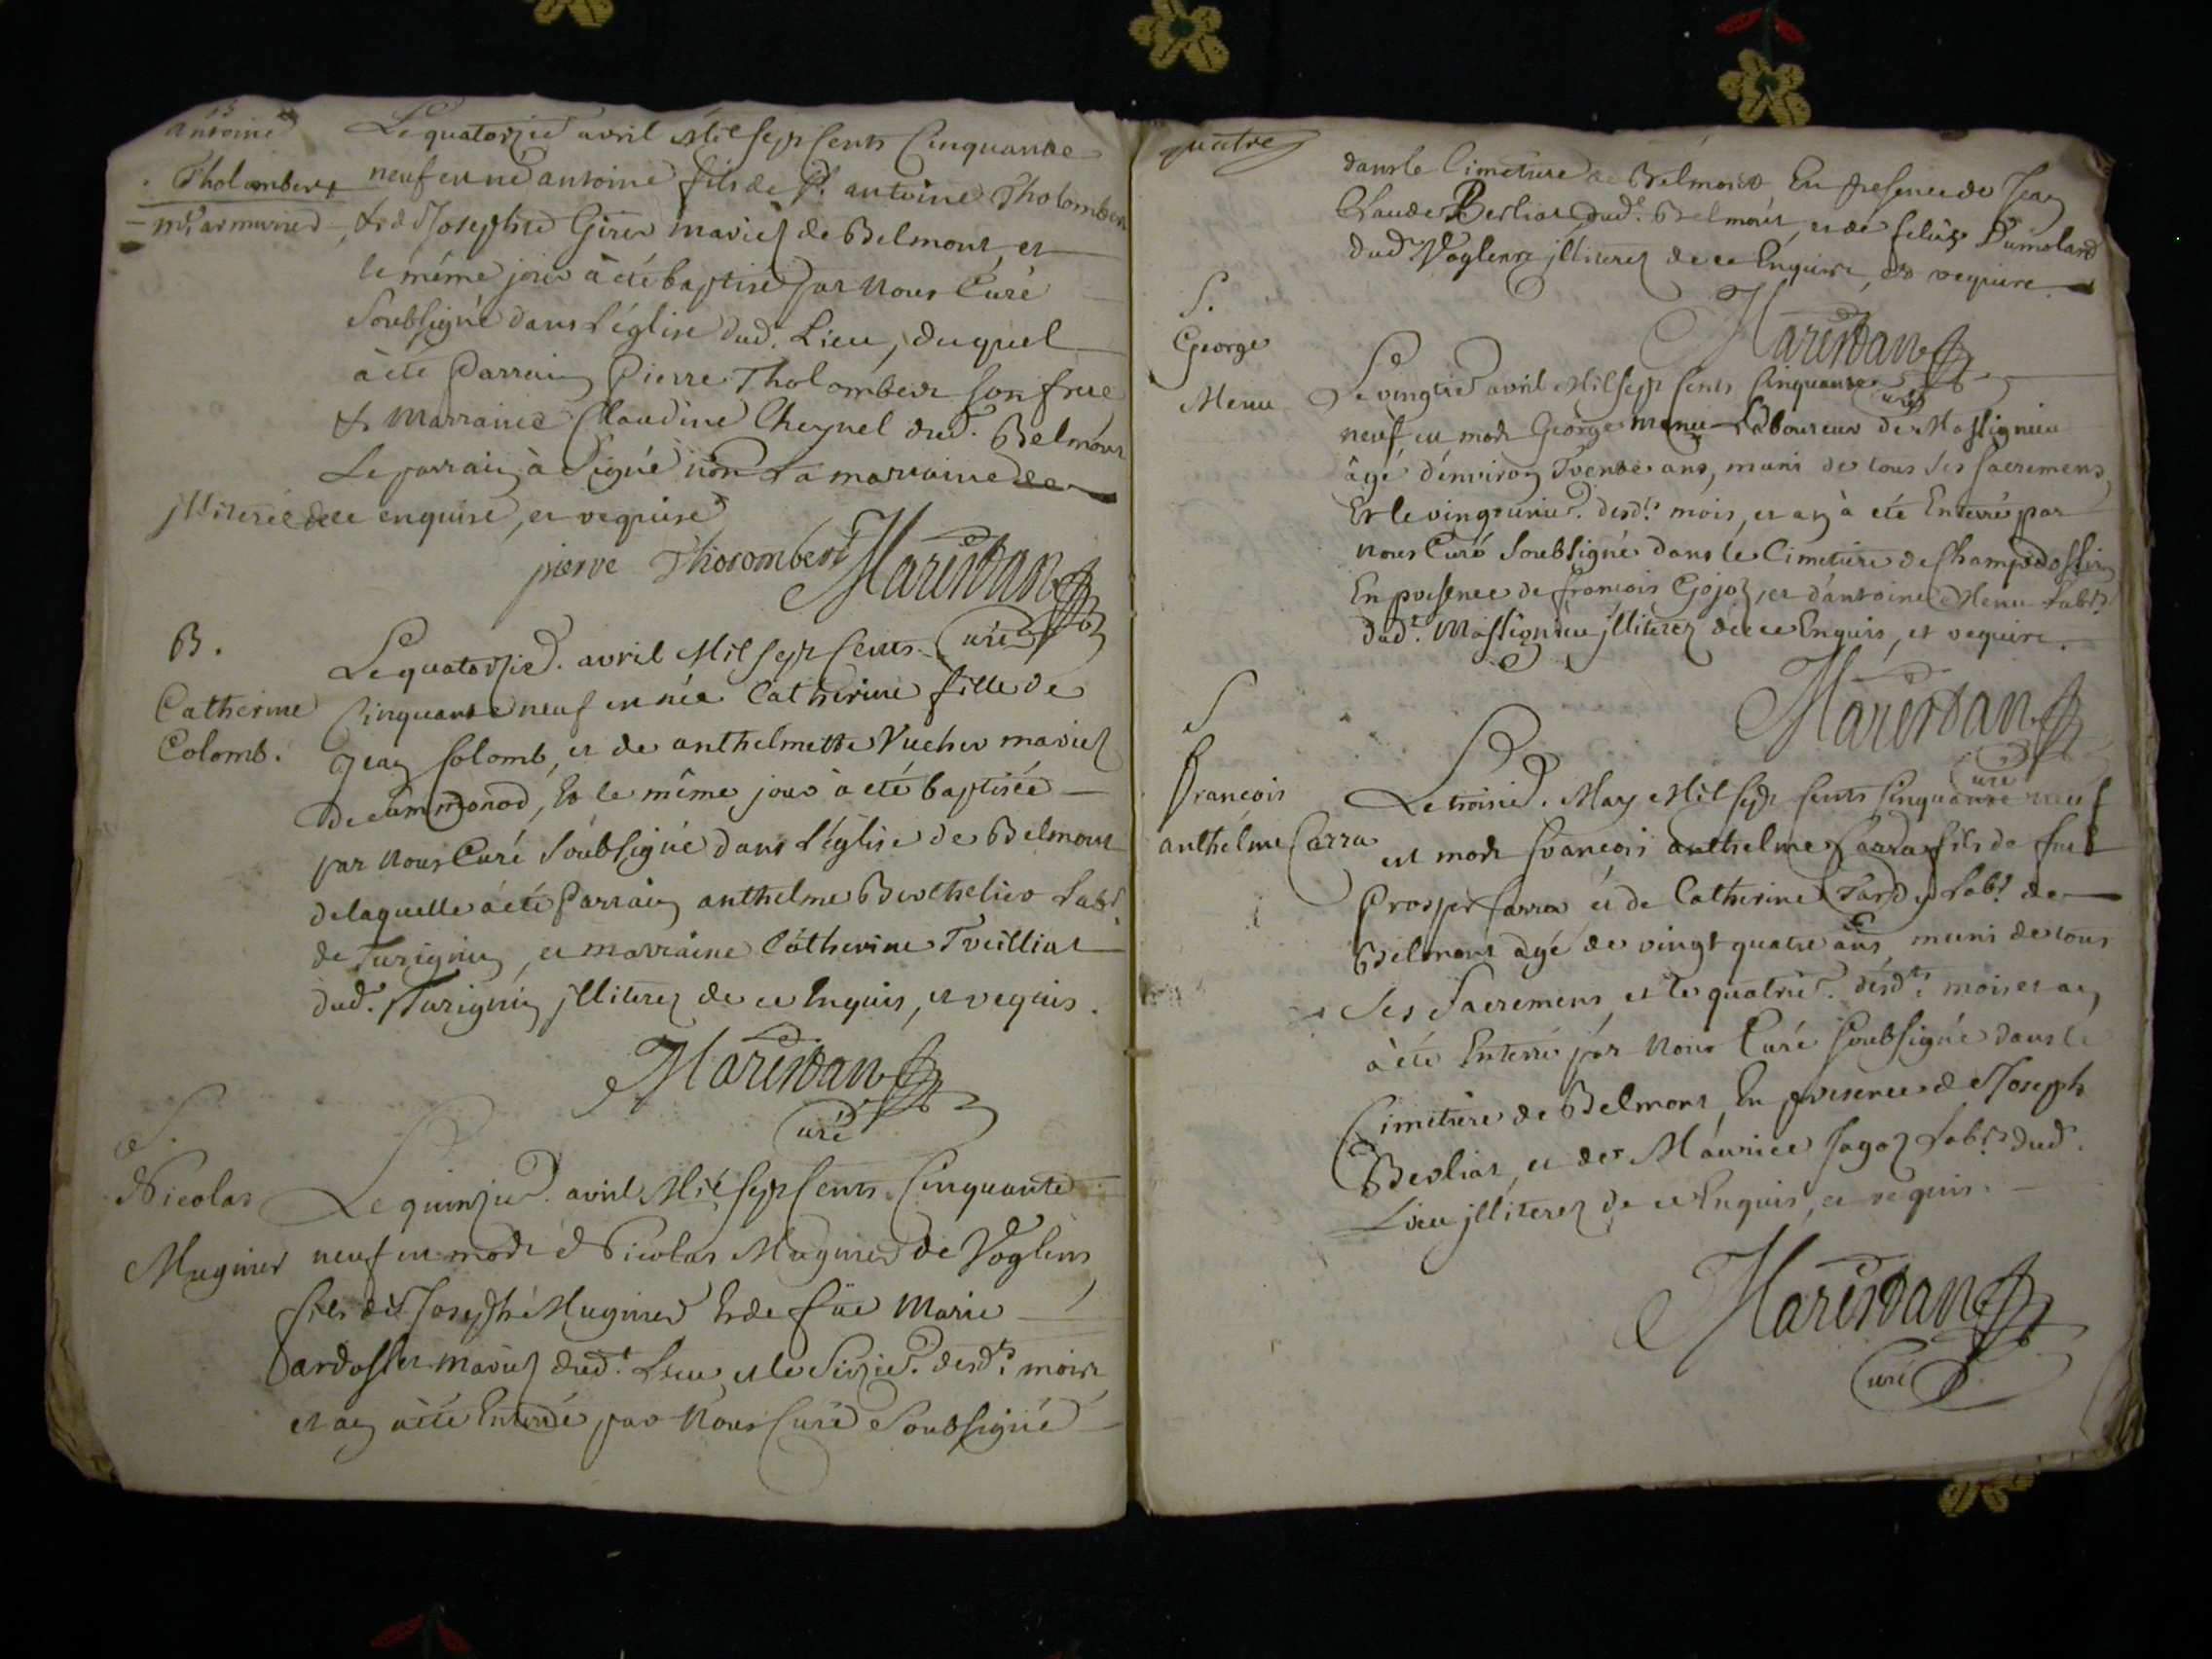 B
antoine
Tholombert
mtre armurier
Le quatorzie avril Mil sept Cents Cinquante
neuf est né antoine fils de Sr. antoine Tholombert
& de Josephte Girer mariez de Belmont, et
le même jour à été baptisé par Nous Curé
Soubsigné dans L'église dud. Lieu, duquel
à été Parrain Pierre Tholombert son frere
& Marraine Claudine Cheynel dud. Belmont
Le parrain à Signé non La marraine
jlliterée de ce enquise, et requise
pierre Tholombert Marindan
Curé
B.
Catherine
Colomb.
Le quatorzie. avril Mil sept Cents
Cinquante neuf est née Catherine fille de
Jean Colomb, et de anthelmette Vucher mariez
de Cummonod, Et le même jour à été baptisée
par Nous Curé Soubsigné dans L'église de Belmont
de laquelle à été Parrain anthelme Berthelier Labr.
de Turignin, et marraine Catherine Treilliat
dud. Turignin jlliterez de ce Enquis, et requis.
Marindan
Curé
S.
Nicolas
Muginer
Le quinzie. avril Mil sept Cents Cinquante
neuf est mort Nicolas Muginer de Voglens
fils de Joseph Muginer & de füe Marie
mariez dud. Lieu, et le Seizie. desdts. mois
et an à été Enterré par Nous Curé Soubsigné
quatre
dans le Cimetiere de Belmont En presence de Jean
Claude Berliat dud. Belmont, et de felix Dumolard
dud. Voglens jlliterez de ce Enquis, et requis.
Marindan
Curé
S.
George
Menu
Le vingtie avril Mil sept Cents Cinquante
neuf est mort George menu Laboureur de Massignieu
âgé d'environ Trente ans, muni de tous Ses Sacremens
Et le vingt unie. desdts. mois, et an à été Enterré par
Nous Curé Soubsigné dans le Cimetiere de Champdossin
En presence de francois Gojoz, et d'antoine Menu Labrs.
dudt. Massignieu jlliterez de ce Enquis, et requis.
Marindan
Curé
S
francois
anthelme Carra
Le troisie. May Mil sept Cents Cinquante neuf
est mort francois anthelme Carra fils de feu
Prosper Carra et de Catherine Tardy Labr. de
Belmont âgé de vingt quatre ans, muni de tous
Ses Sacremens, et le quatrie. desdts. mois et an
à été Enterré par Nous Curé Soubsigné dans le
Cimetiere de Belmont, En presence de Joseph
Berliat, et de Maurice Jagoz Labrs. dud.
Lieu jlliterez de ce Enquis, et requis.
Marindan
Curé